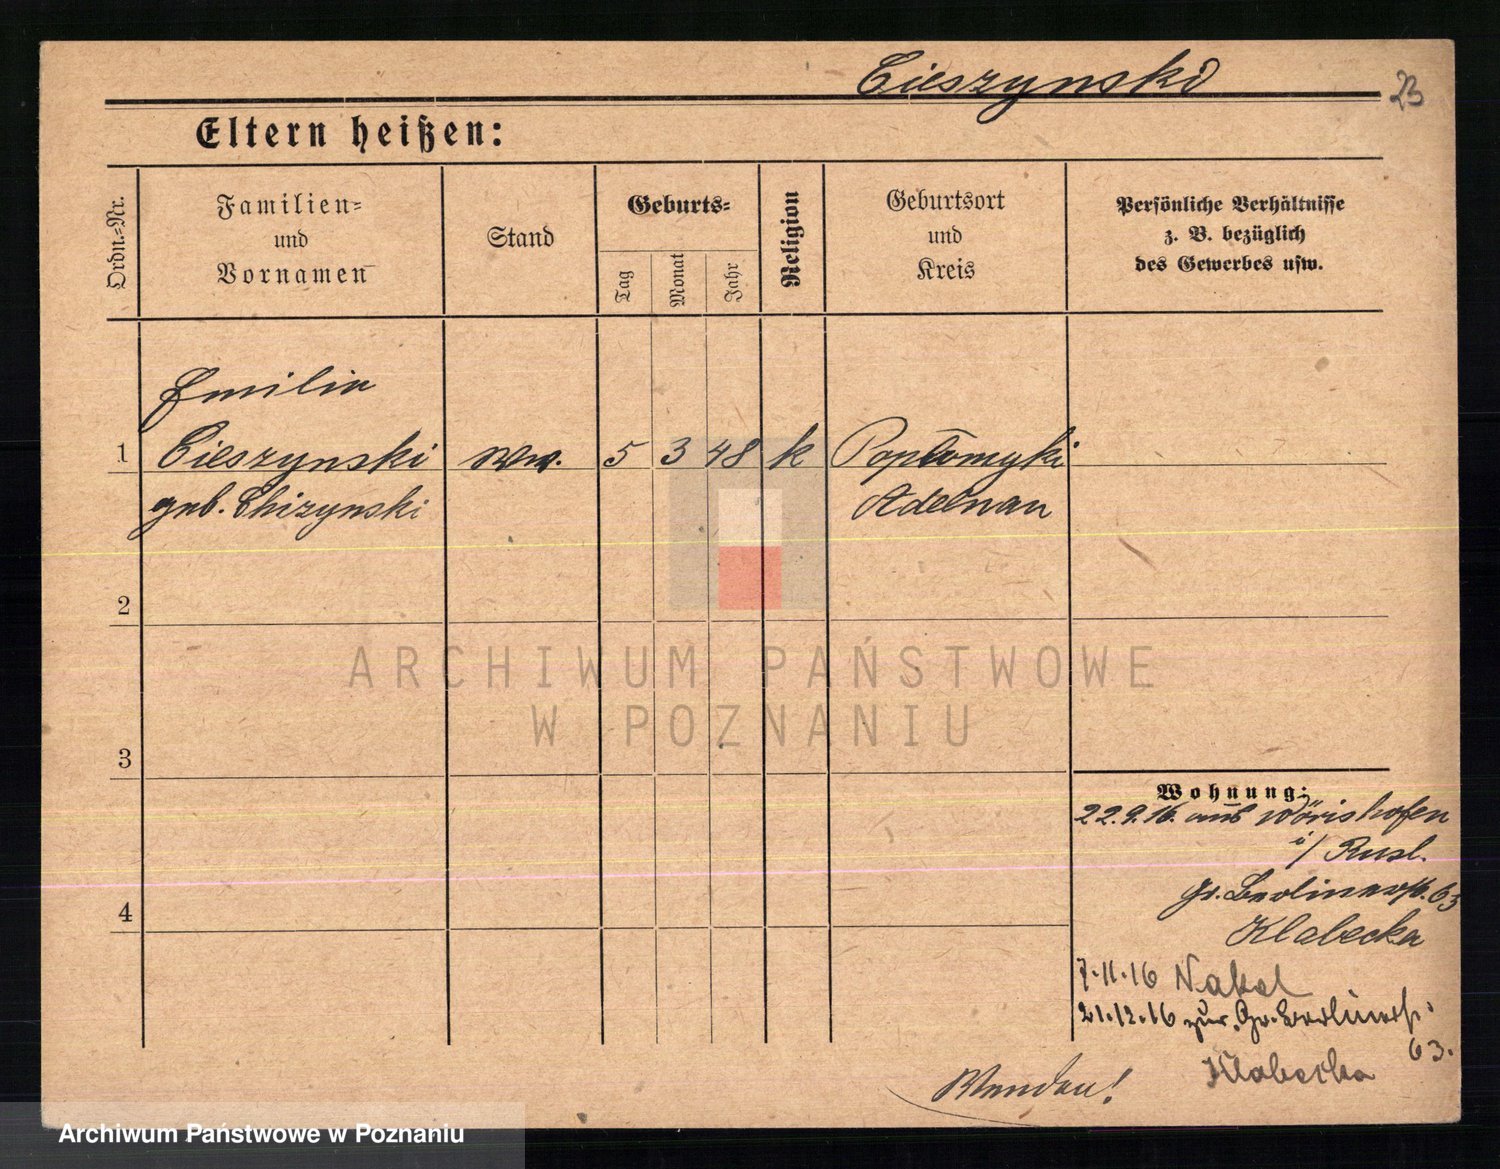 Cieszynski
23
Eltern heißen:
Ordn.-Nr.
Familien-
und
Vornamen
Stand
Geburts-
Tag
Monat
Jahr
Religion
Geburtsort
und
Kreis
Persönliche Verhältnisse
z. B. bezüglich
des Gewerbes usw.
Emilie
1 Cieszynski Ww. 5 3 48 k
geb. Chizynski Adelnau
2
3
4
ARCHIWUM PAŃSTWOWE
W POZNANIU
Wohnung:
22.9.16. aus Wörishofen
i/
Gr. Berlinerstr. 63
Klabecka
7.11.16 Nakel
21.12.16 zur. Gr. Berlinerstr.
63.
Klabecka
Wenden!
Archiwum Państwowe w Poznaniu